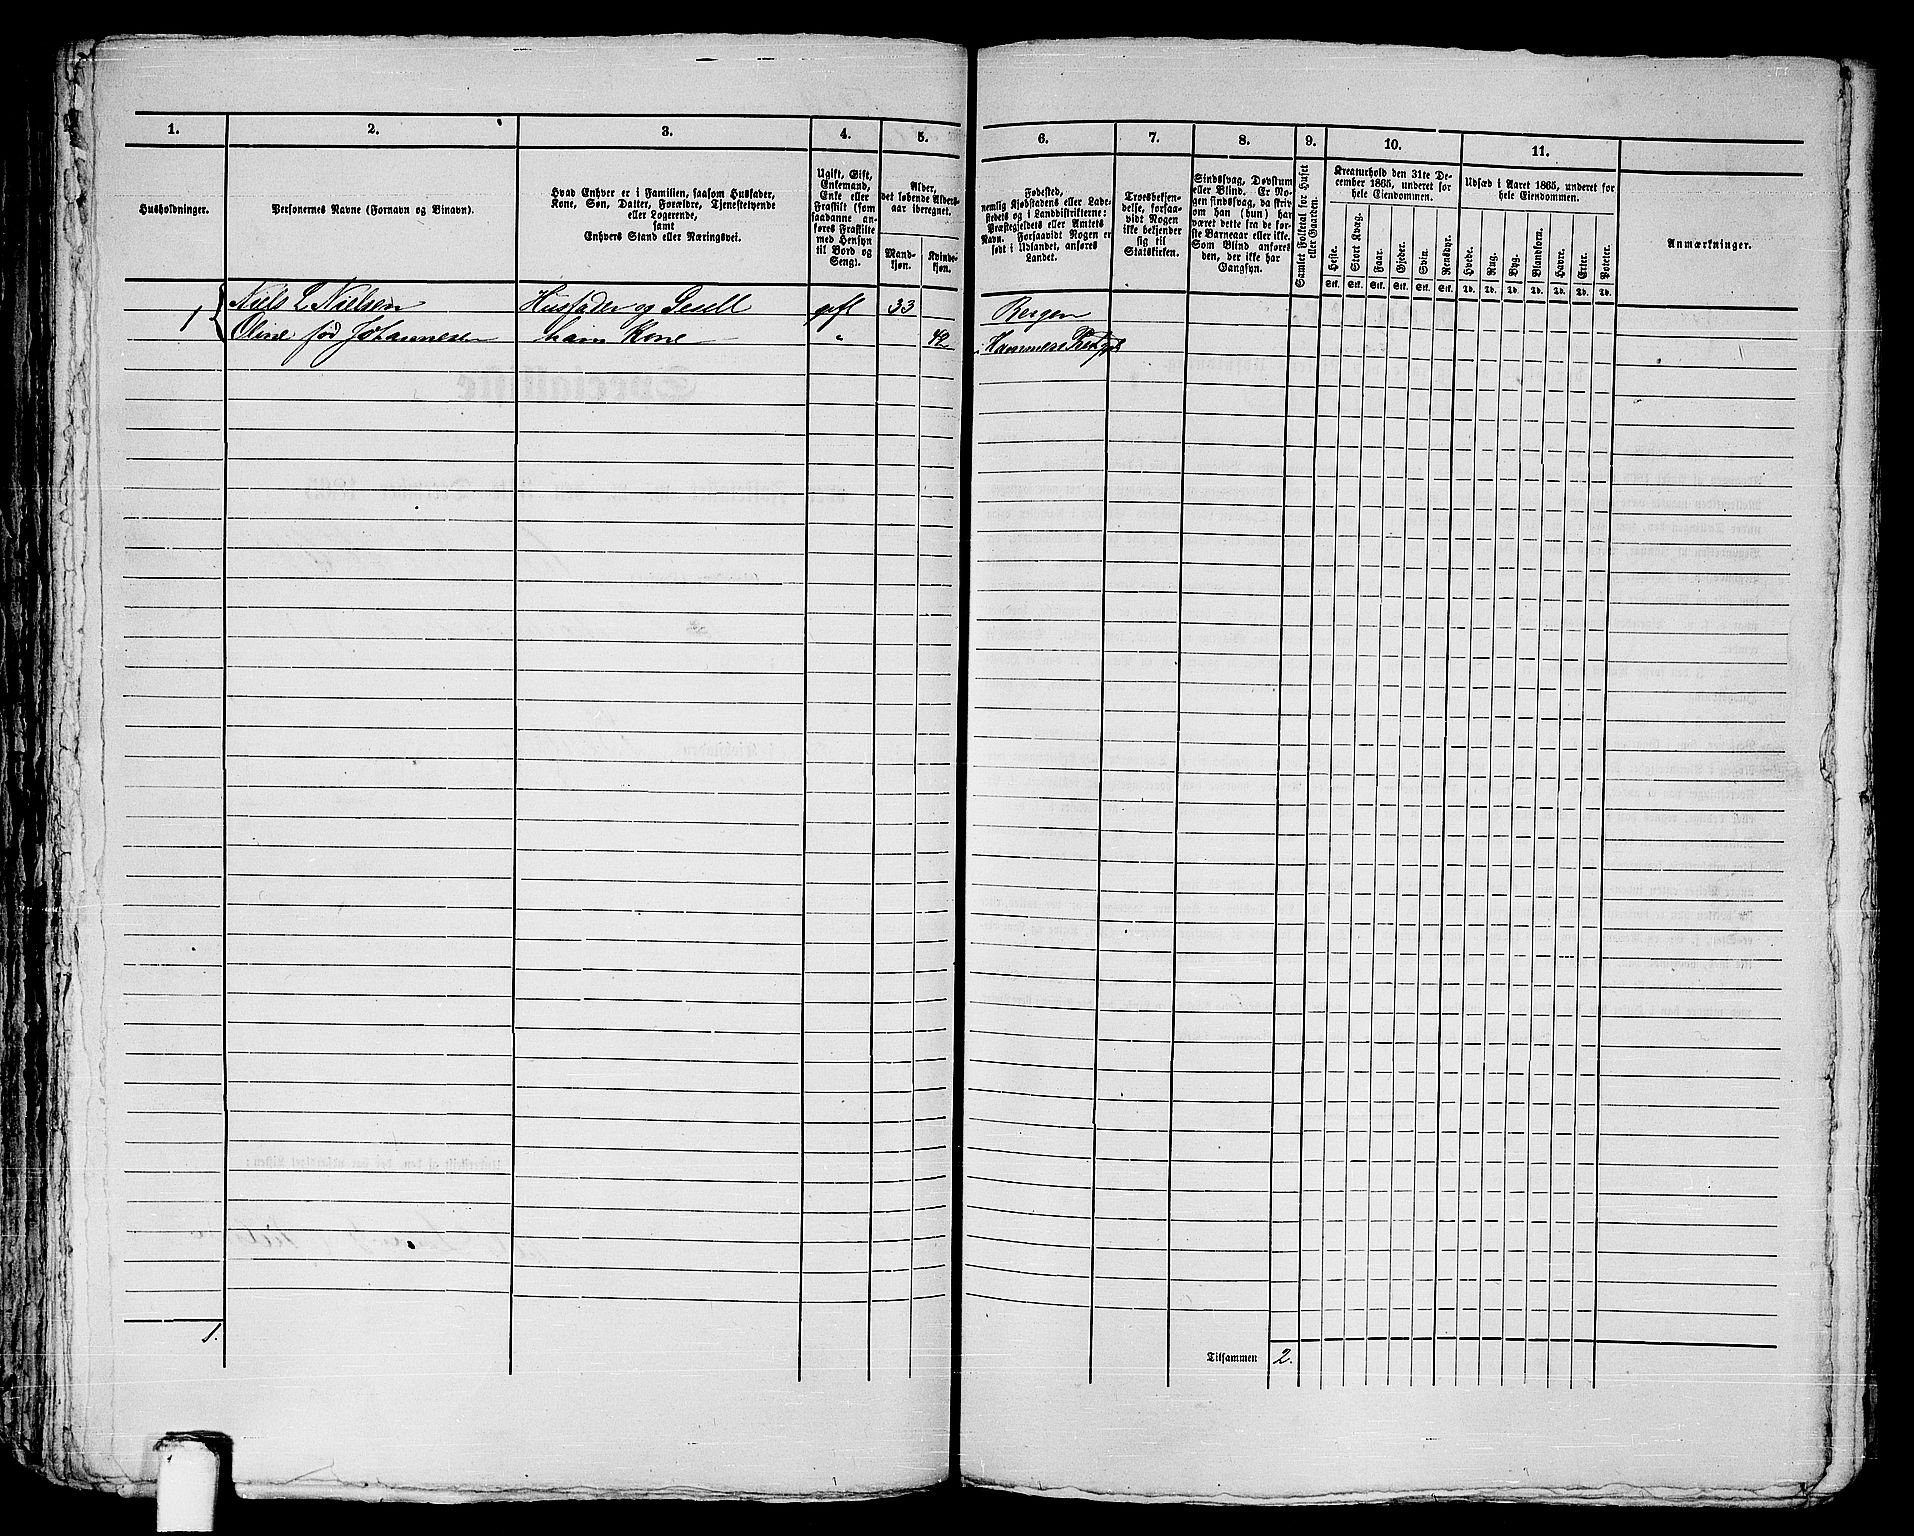 1.
2.
3.
4.
5.
6.
7.
8.
9.
10.
11.
Husholdninger.
Personernes Navne (Fornavn og Binavn).
Hvad Enhver er i Familien, saasom Husfader,
Kone, Søn, Datter, Forældre, Tjenestetyende
eller Logerende,
samt
Enhvers Stand eller Næringsvei.
Ugift, Gift,
Enkemand,
Enke eller
Fraskilt (som
saadanne an-
føres Fraskilte
med Hensyn
til Bord og
Seng).
Alder,
det løbende Alders-
aar iberegnet.
Mand-
kjøn.
Kvinde-
kjøn.
Fødested,
nemlig Kjøbstadens eller Lade-
stedets og i Landdistrikterne:
Præstegjeldets eller Amtets
Navn. Forsaavidt Nogen er
født i Udlandet, anføres
Landet.
Troesbekjen-
delse, forsaa-
vidt Nogen
ikke bekjender
sig til
Statskirken.
Sindssvag, Døvstum
eller Blind. Er No-
gen sindssvag, da skriv
om han (hun) har
været dette fra de før-
ste Barneaar eller ikke.
Som Blind anføres
den, der ikke har
Gangsyn.
Samlet Folketal for Huset
eller Gaarden.
Kreaturhold den 31te De-
cember 1865, underet for
hele Eiendommen.
Heste.
Stort Kvæg.
Faar.
Gjeder.
Svin.
Rensdyr.
Stk. Stk. Stk. Stk. Stk. Stk.
Udsæd i Aaret 1865, underet for
hele Eiendommen.
Hvede.
Rug.
Byg.
Blandkorn.
Havre.
Erter.
Poteter.
Td. Td. Td. Td. Td. Td. Td.
Anmærkninger.
1 Niels L Nielsen Husfader og Gesell gift 33 Bergen
Oline fød Johannesen hans Kone " 42 Hammers Prestgj
1.
Tilsammen 2.